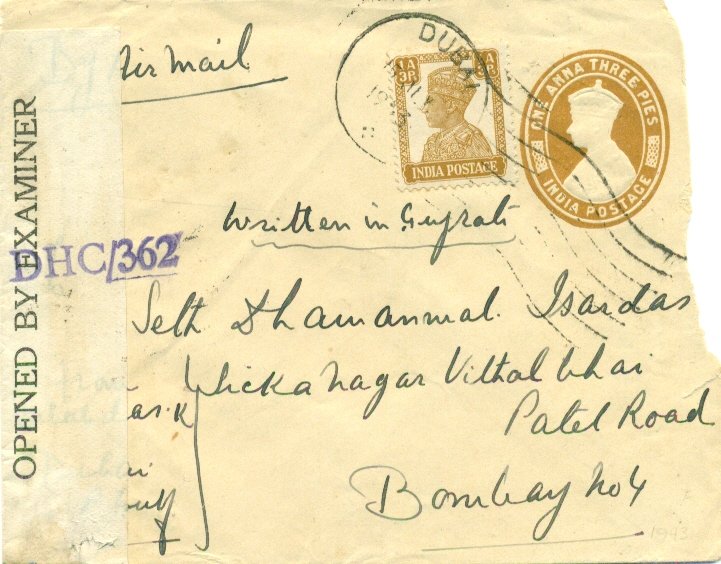 By Air Mail
DUBAI
1A 3P
INDIA POSTAGE
ONE ANNA THREE PIES
INDIA POSTAGE
Written in Gujrati
OPENED BY EXAMINER
DHC/362
Seth Dhamanmal. Isardas
Vithalbhai
Patel Road
Bombay No 4
1943